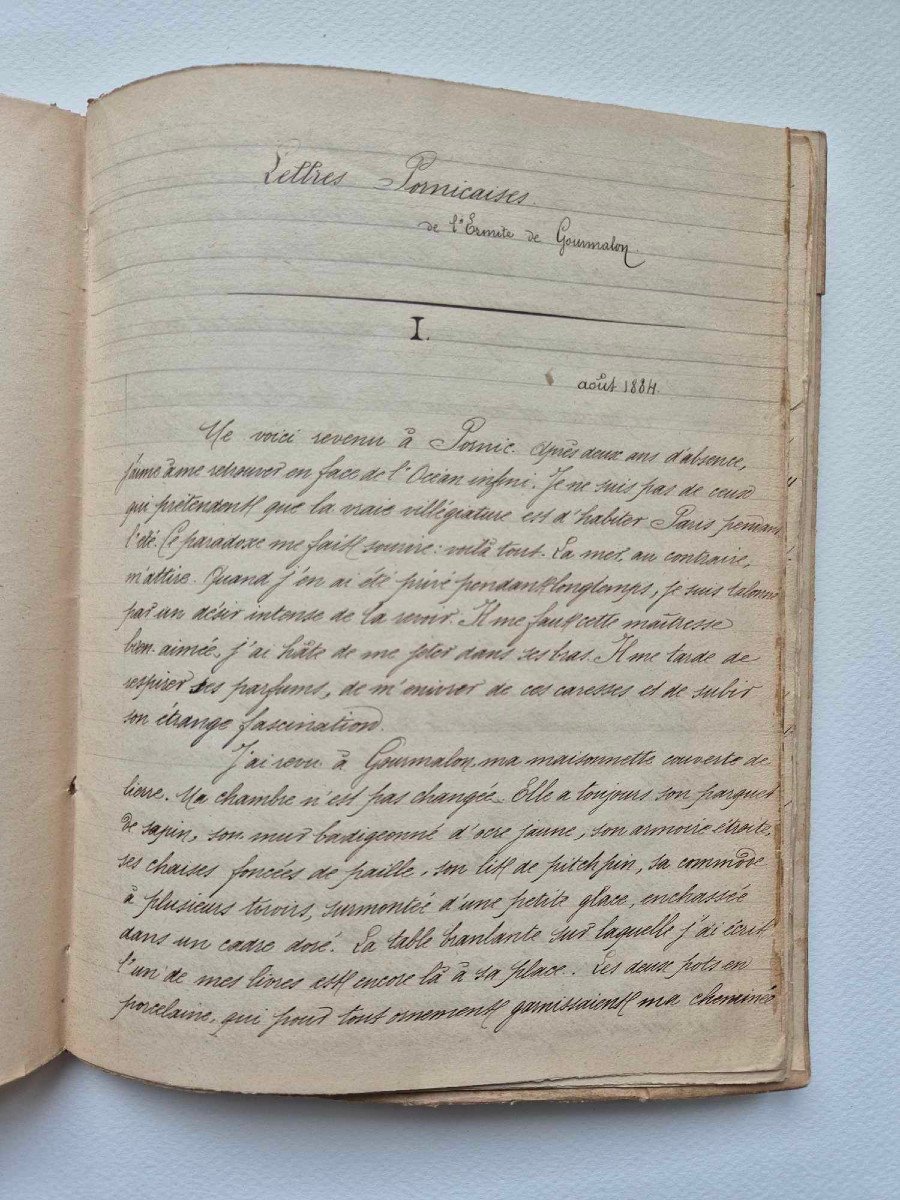 Lettres Pornicaises.
de l'Ermite de Gourmalon.
I.
août 1884.
Me voici revenu à Pornic. Après deux ans d'absence,
j'aime à me retrouver en face de l'Océan infini. Je ne suis pas de ceux
qui prétendent que la vraie villégiature est d'habiter Paris pendant
l'été. Ce paradoxe me fait sourire : voilà tout. La mer, au contraire,
m'attire. Quand j'en ai été privé pendant longtemps, je suis talonné
par un désir intense de la revoir. Il me faut cette maîtresse
bien-aimée, j'ai hâte de me jeter dans ses bras. Il me tarde de
respirer ses parfums, de m'enivrer de ces caresses et de subir
son étrange fascination.
J'ai revu à Gourmalon, ma maisonnette couverte de
lierre. Ma chambre n'est pas changée. Elle a toujours son parquet
de sapin, son mur badigeonné d'ocre jaune, son armoire étroite,
ses chaises foncées de paille, son lit de pitchpin, sa commode
à plusieurs tiroirs, surmontée d'une petite glace, enchassée
dans un cadre doré. La table branlante sur laquelle j'ai écrit
l'un de mes livres est encore là à sa place. Les deux pots en
porcelaine, qui pour tout ornement garnissaient ma cheminée